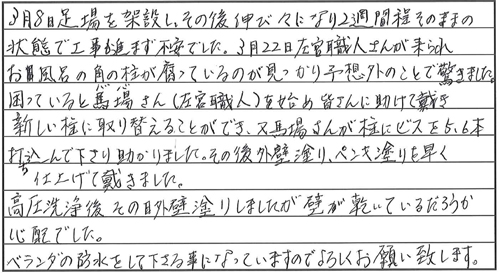 3月8日足場を架設し、その後伸び々になり2週間程そのままの
状態で工事も進まず不安でした。3月22日左官職人さんが来られ
お風呂の角の柱が腐っているのが見つかり予想外のことで驚きました。
困っていると馬場さん(左官職人)を始め皆さんに助けて戴き
新しい柱に取り替えることができ、又馬場さんが柱にビスを5,6本
打ち込んで下さり助かりました。その後外壁塗り、ペンキ塗りも早く
仕上げて戴きました。
高圧洗浄後その日外壁塗りしましたが壁が乾いているだろうか
心配でした。
ベランダの防水をして下さる事になっていますのでよろしくお願い致します。